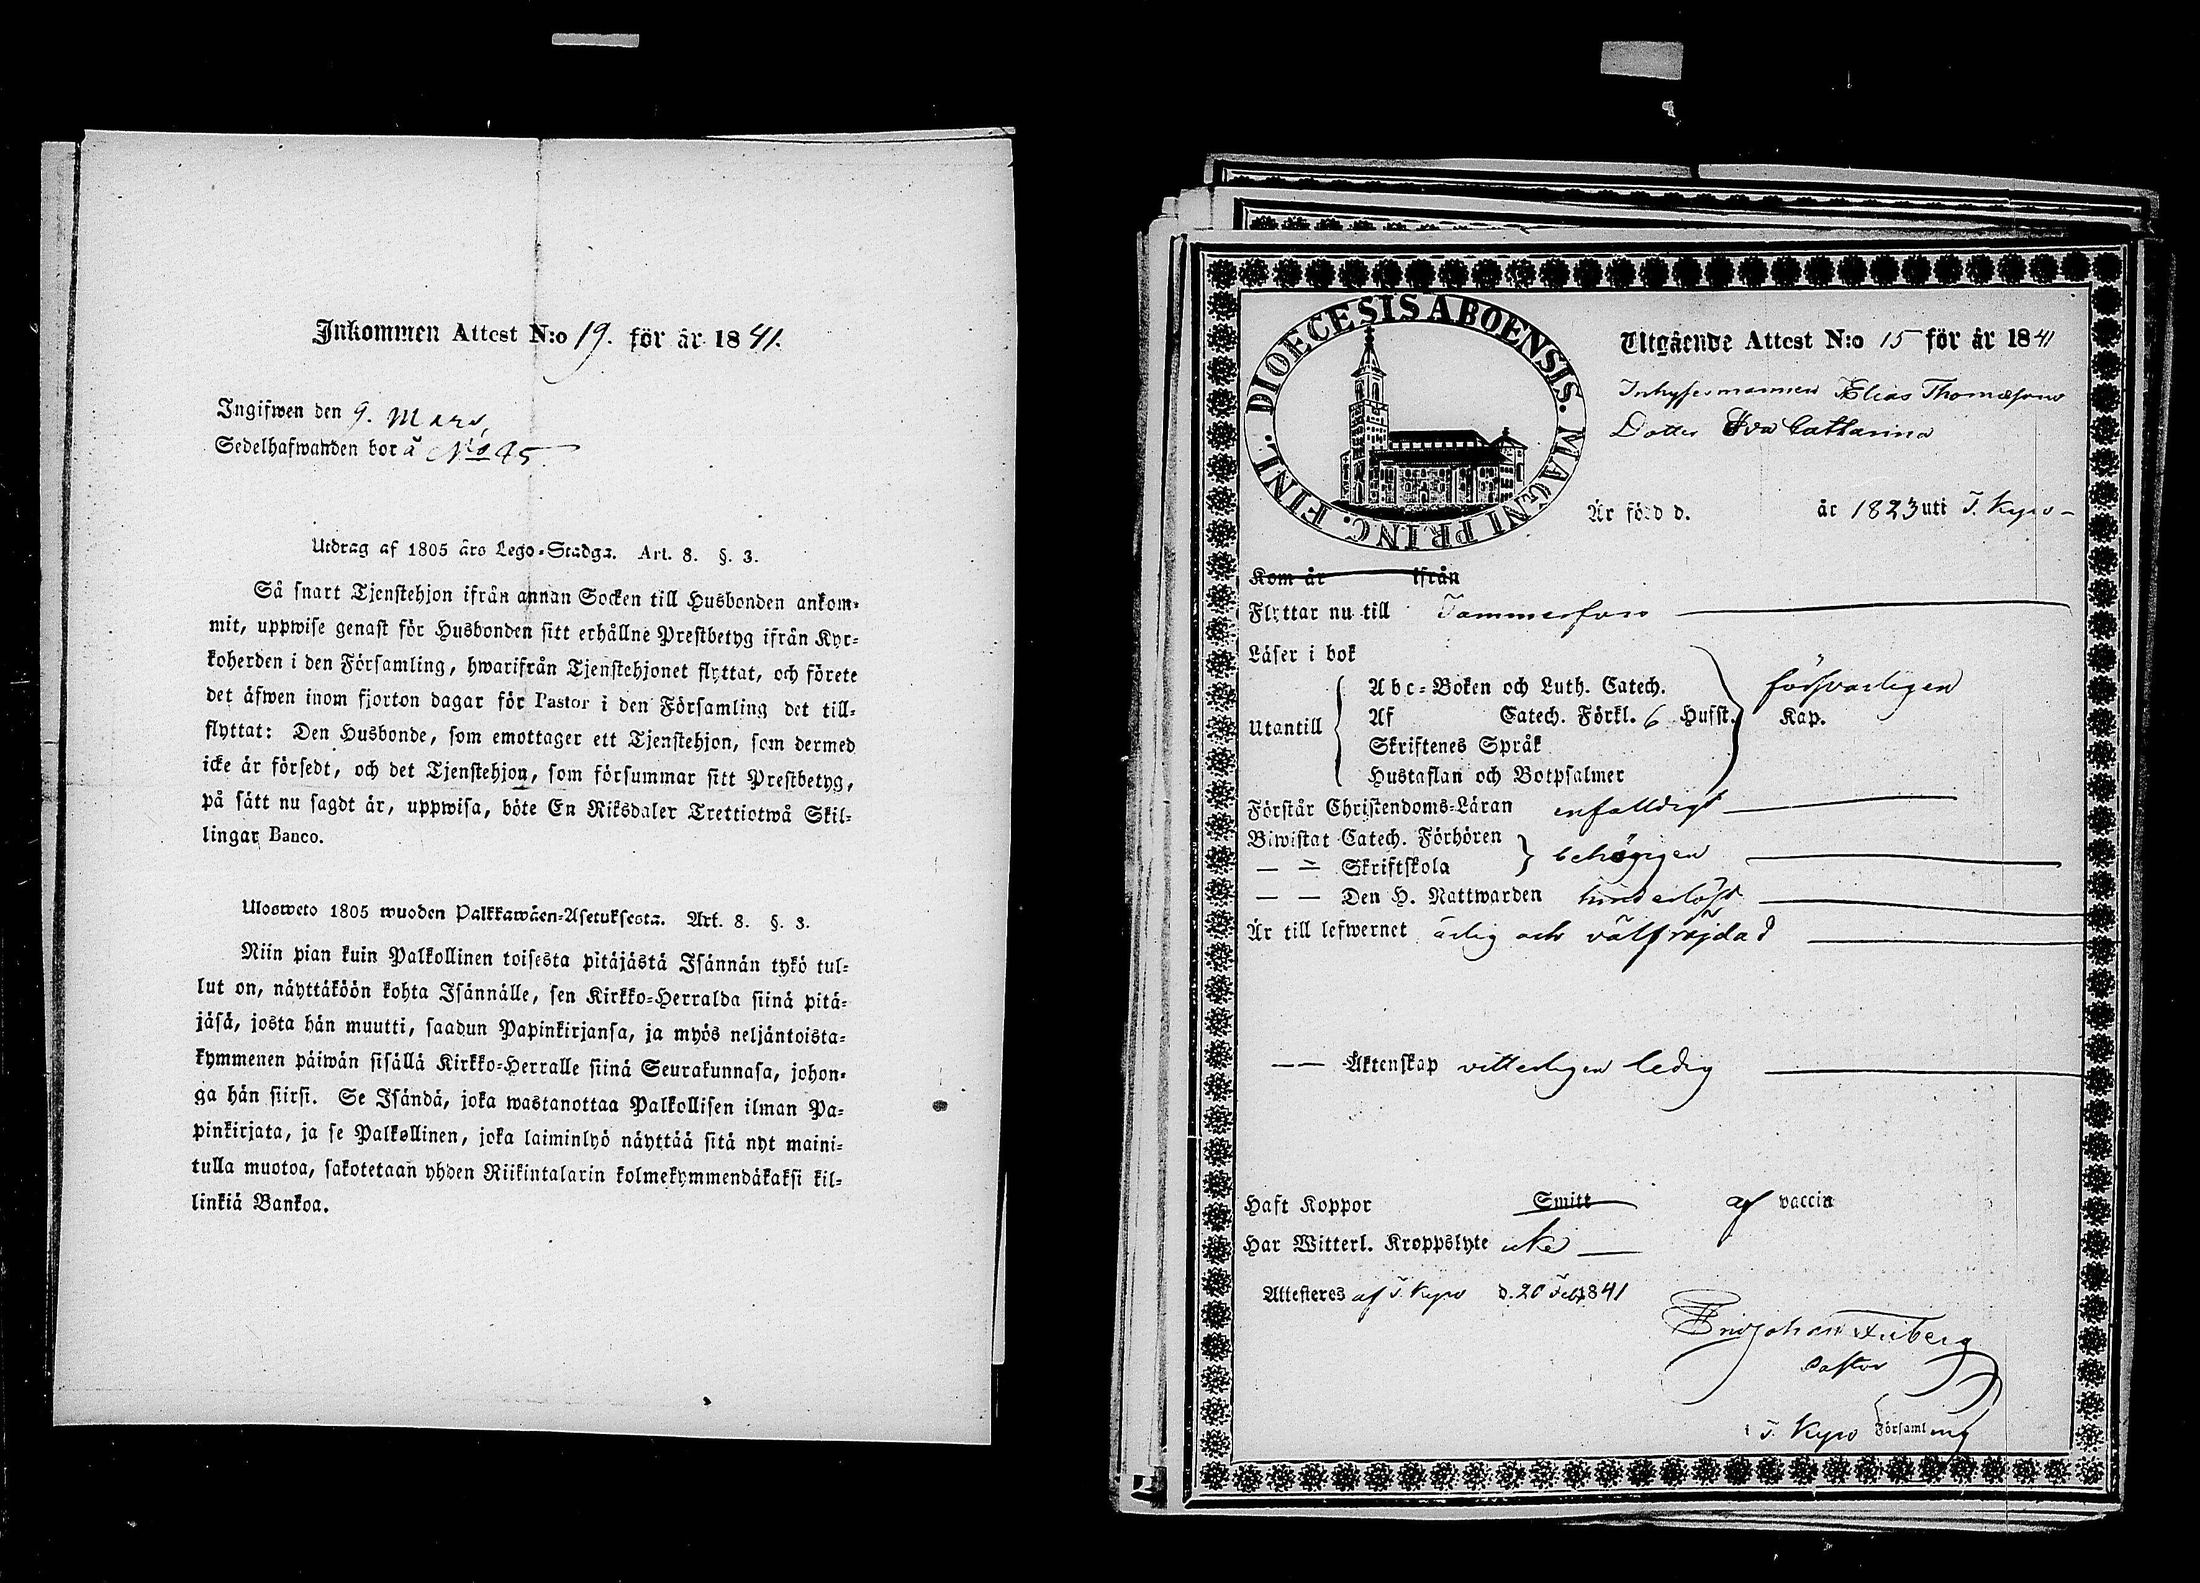 Inkommen Attest N:o 19. för år 1841.
Ingifwen den 9. Mars,
Sedelhafwanden bor å No 95.
Utdrag af 1805 års Lego-Stadga. Art. 8. §. 3.
Så snart Tjenstehjon ifrån annan Socken till Husbonden ankom-
mit, uppwise genast för Husbonden sitt erhållne Prestbetyg ifrån Kyr-
koherden i den Församling, hwarifrån Tjenstehjonet flyttat, och förete
det äfwen inom fjorton dagar för Pastor i den Församling det till-
flyttat: Den Husbonde, som emottager ett Tjenstehjon, som dermed
icke är försedt, och det Tjenstehjon, som försummar sitt Prestbetyg,
på sätt nu sagdt är, uppwisa, böte En Riksdaler Trettiotwå Skil-
lingar Banco.
Ulosweto 1805 wuoden Palkkawäen-Asetuksesta. Art. 8. §. 3.
Niin pian kuin Palkollinen toisesta pitäjästä Isännän tykö tul-
lut on, näyttäköön kohta Isännälle, sen Kirkko-Herralda siinä pitä-
jäsä, josta hän muutti, saadun Papinkirjansa, ja myös neljäntoista-
kymmenen päiwän sisällä Kirkko-Herralle siinä Seurakunnasa, johon-
ga hän siirsi. Se Isändä, joka wastanottaa Palkollisen ilman Pa-
pinkirjata, ja se Palkollinen, joka laiminlyö näyttää sitä nyt maini-
tulla muotoa, sakotetaan yhden Riikintalarin kolmekymmendäkaksi kil-
linkiä Bankoa.
DIOECESIS ABOENSIS. MAGNI PRINC. FINL.
Utgående Attest N:o 15 för år 1841
Inhysesmannen Elias Thomæsons
Dotter Eva Catharina
Är född d. år 1823 uti T. Kyro
Kom år ifrån
Flyttar nu till Tammerfors
Läser i bok
Utantill
Abc-Boken och Luth. Catech. försvarligen
Af Catech. Förkl. 6 Hufst. Kap.
Skriftenes Språk
Hustaflan och Botpsalmer
Förstår Christendoms-Läran enfalldigt
Biwistat Catech. Förhören
— — Skriftskola behörigen
— — Den H. Nattwarden hinderlöst
Är till lefwernet ärlig och välfrejdad
— — Äktenskap vitterligen ledig
Haft Koppor Smitt af vaccin
Har Witterl. Kroppslyte icke
Attesteres af T. Kyro d. 20 Feb. 1841
Pastor
i T. Kyro Församling